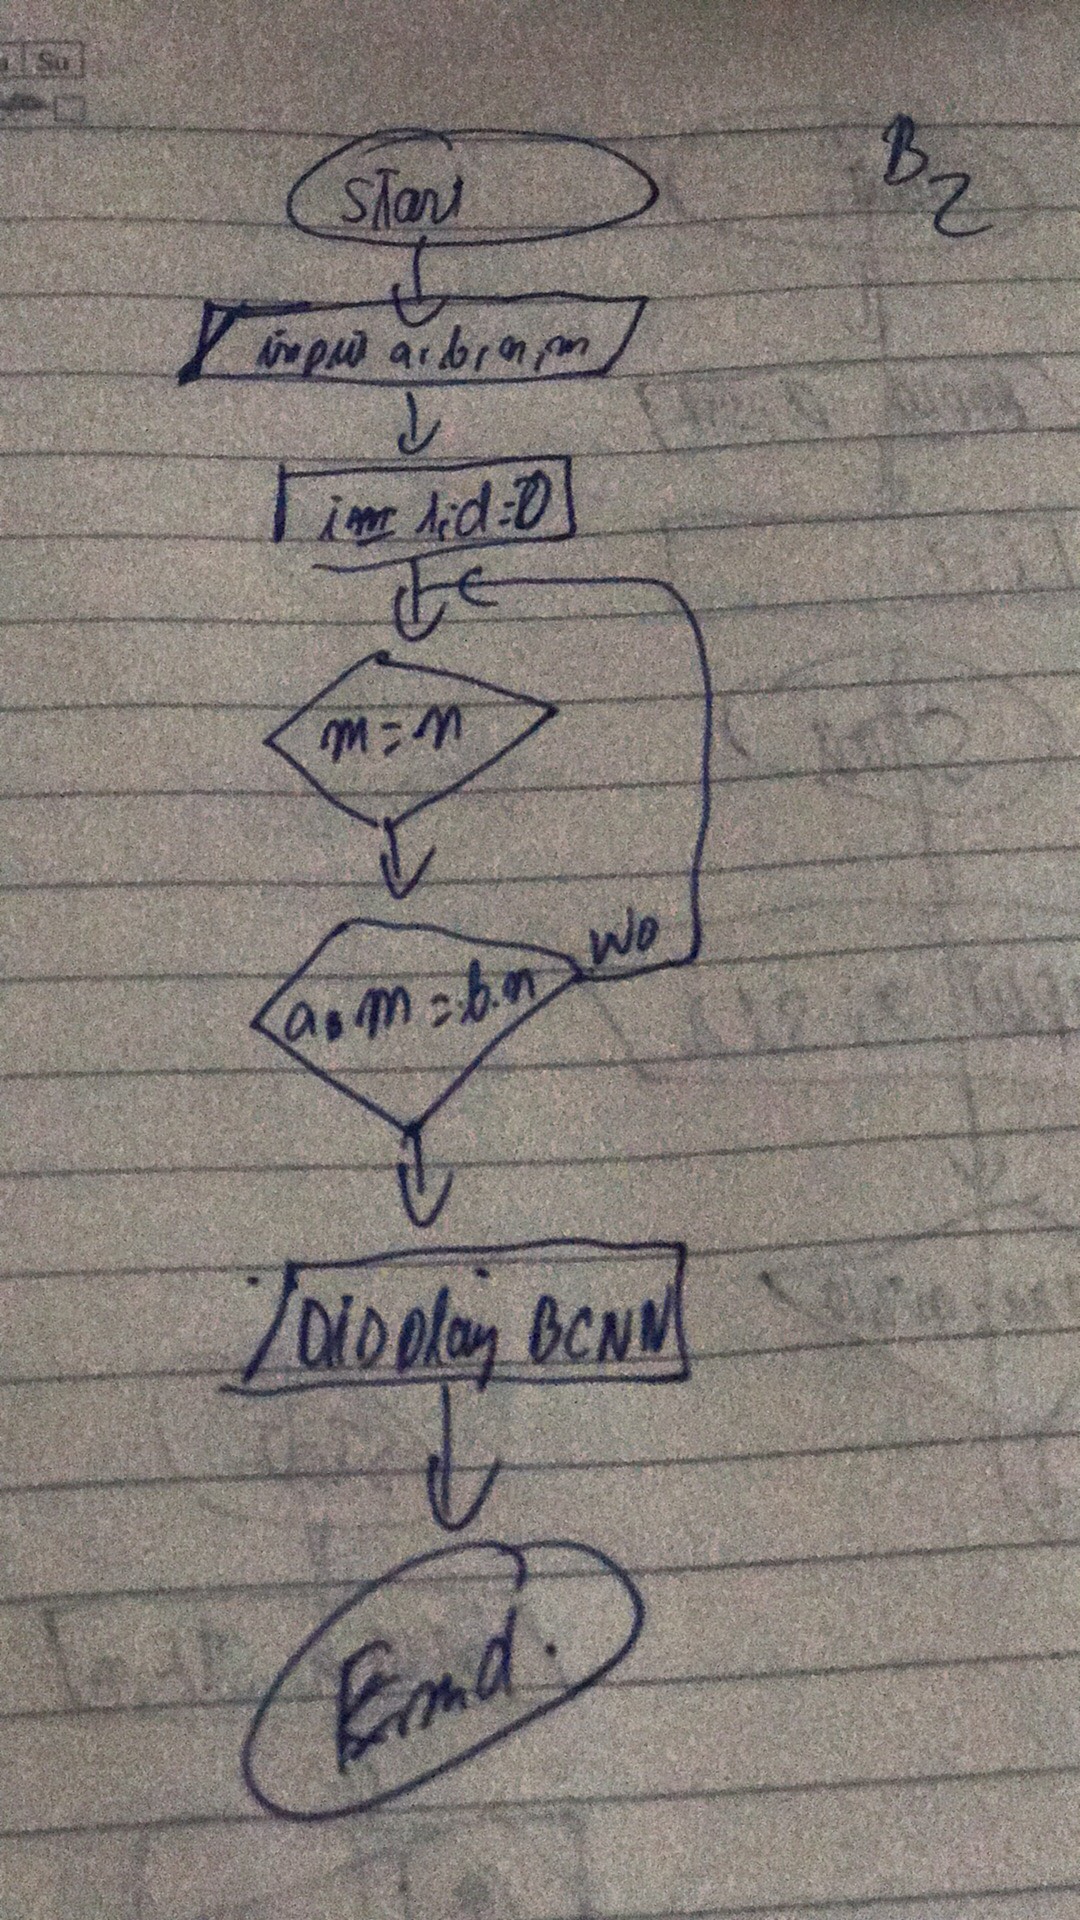 Su
B2
Start
input a, b, n, m
int i, d = 0
m = n
a.m = b.n
No
Display BCNN
End.